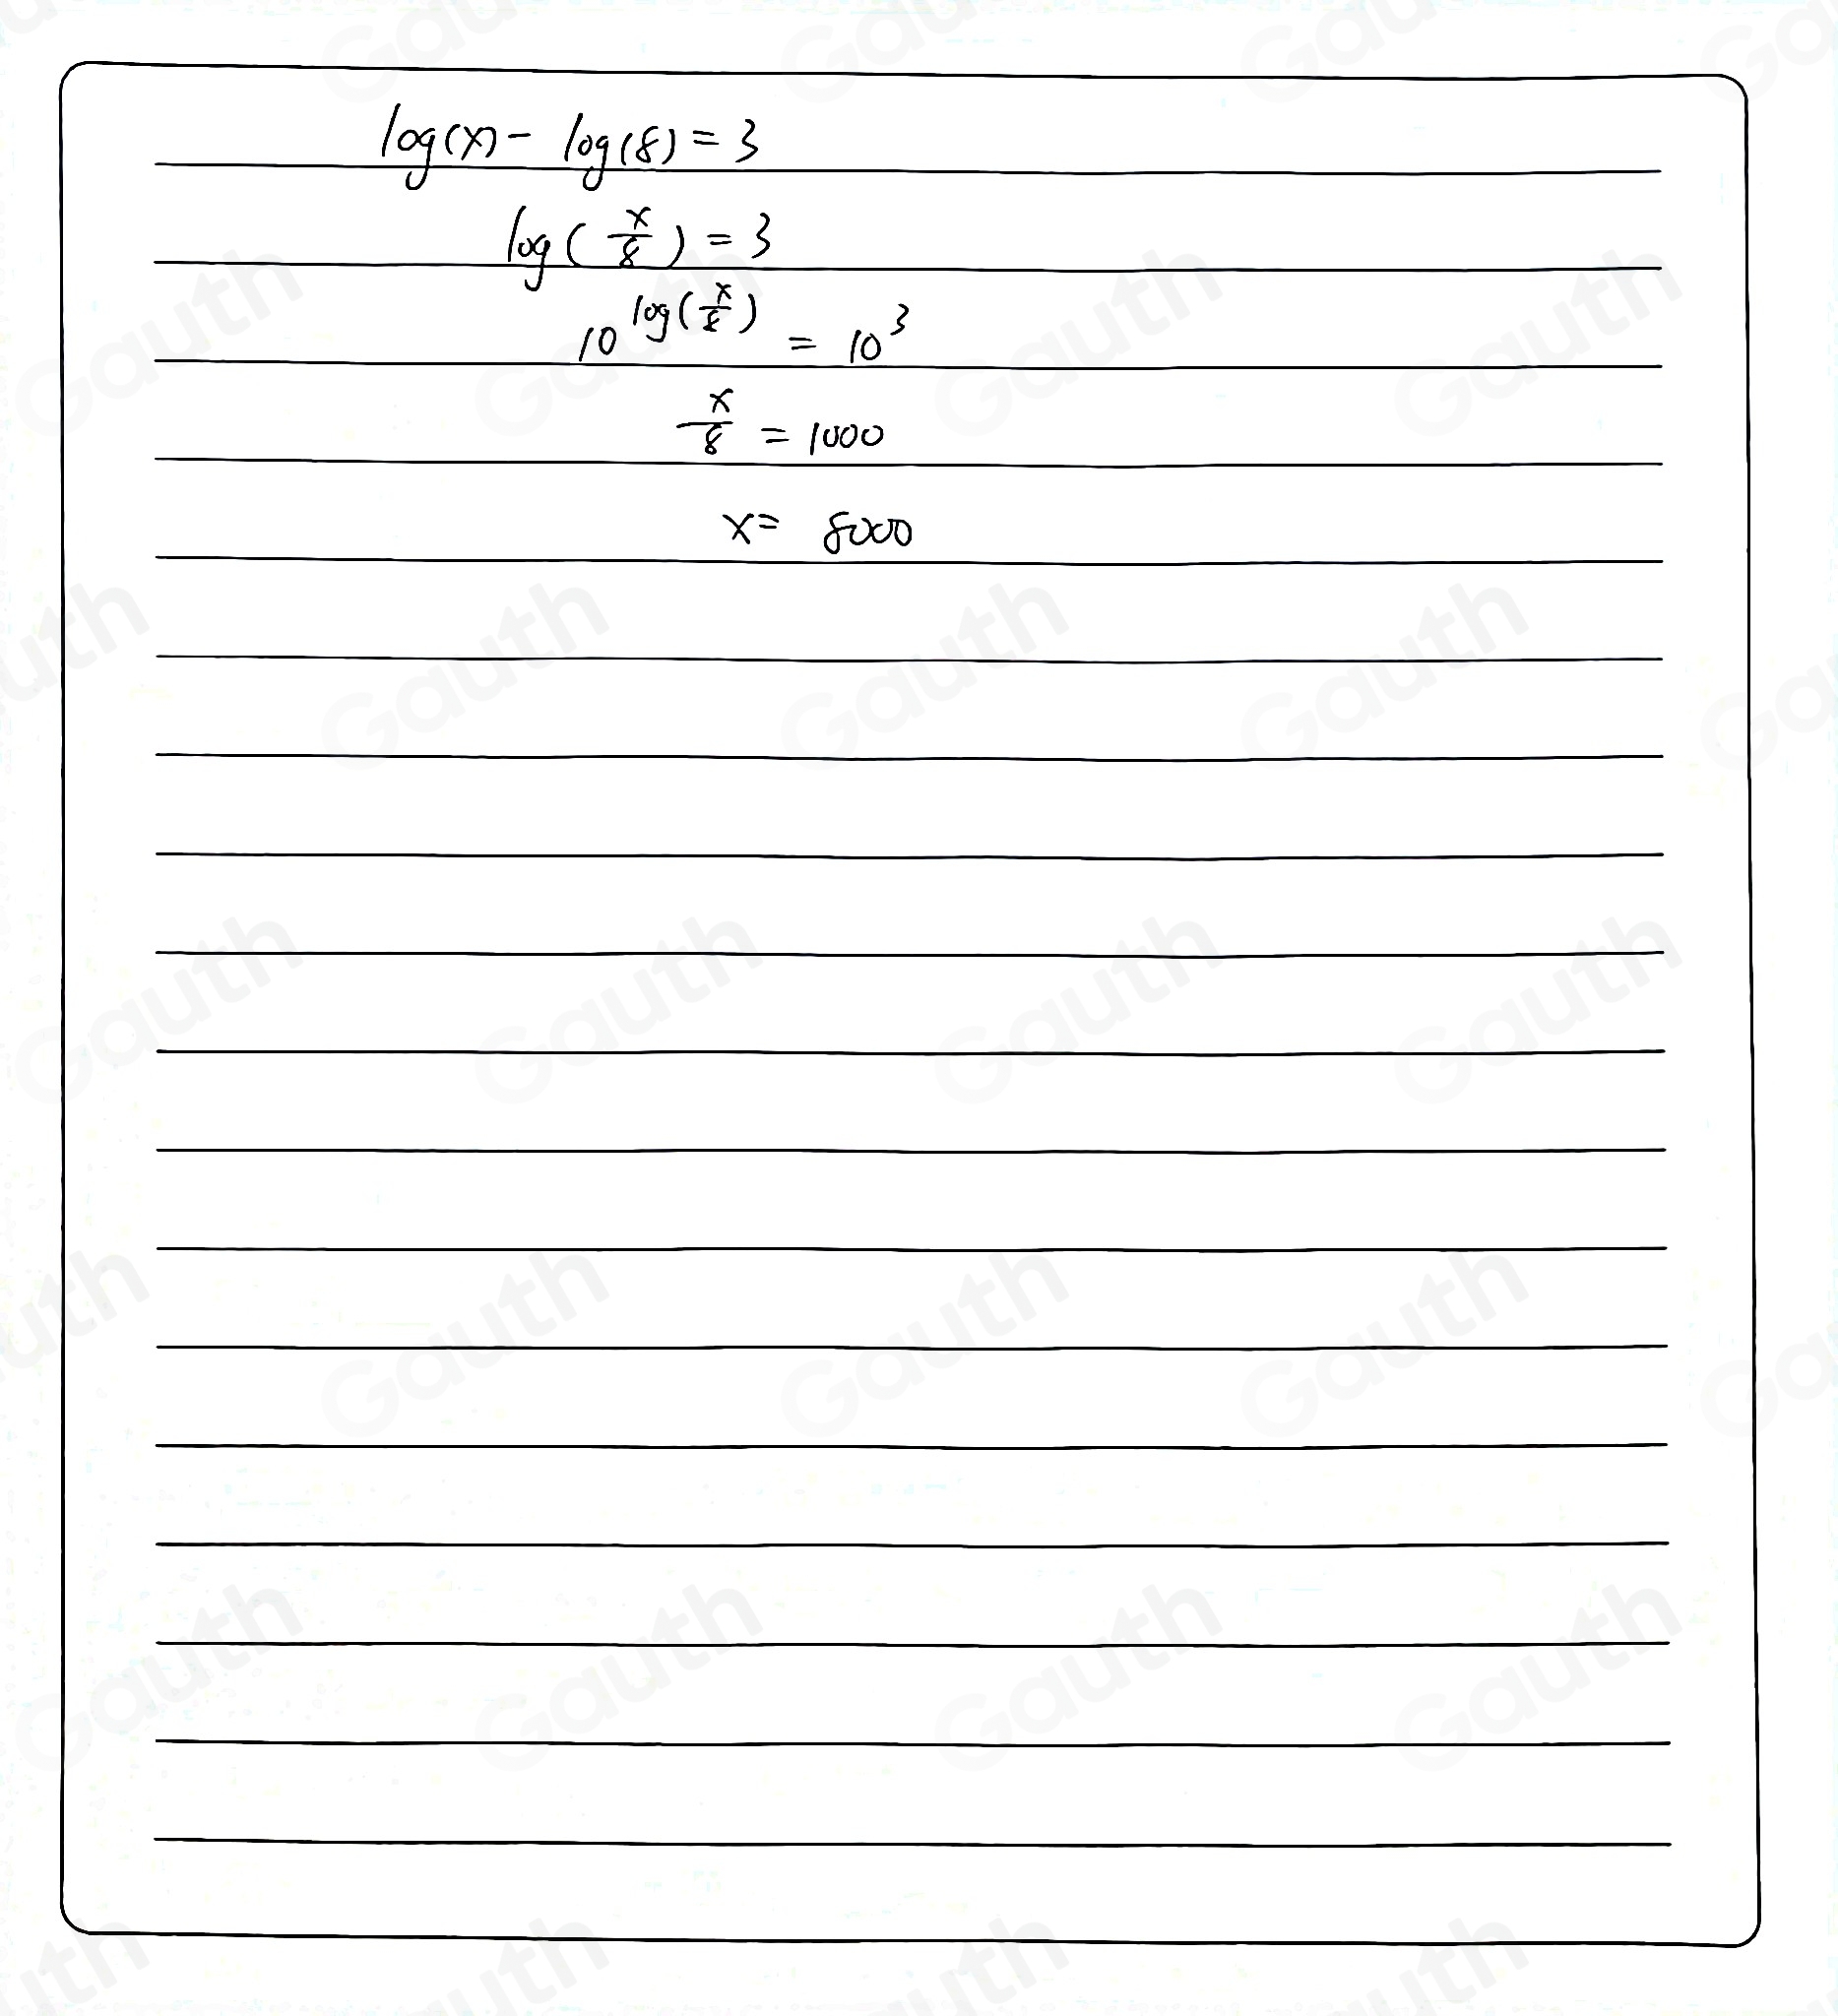 log(x) - log(8) = 3
log(x/8) = 3
10^log(x/8) = 10^3
x/8 = 1000
x = 8000
Gauth